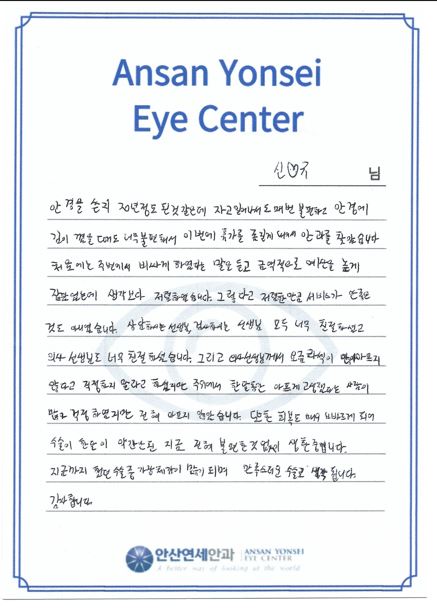 Ansan Yonsei
Eye Center
신♡규 님
안경을 쓴지 20년정도 된것 같은데 자고 일어나서도 매번 불편하고 안경에
김이 꼈을 때도 너무 불편해서 이번에 휴가를 내서 안과를 찾았습니다
처음에는 주변에서 비싸게 하였다는 말을 듣고 금액적으로 예산을 높게
잡았었는데 생각보다 저렴하였습니다. 그렇다고 저렴한만큼 서비스가 안좋은
것도 아니였습니다. 상담하시는 선생님, 검사하시는 선생님 모두 너무 친절하셨고
의사 선생님도 너무 친절하셨습니다. 그리고 의사선생님께서 요즘 라식이 아프지
않다고 걱정하지 말라고 하셨지만 주위에서 한달동안 아프게 고생했다는 사람이
많고 걱정하였지만 전혀 아프지 않았습니다. 모든 회복도 매우 빠르게 되어
수술이 한달이 약간 안된 지금 전혀 불편한 것 없이 생활중입니다.
지금까지 했던 수술중 가장 제가 만족스러운 수술로 생각됩니다.
감사합니다.
안산연세안과 ANSAN YONSEI
EYE CENTER
A better way of looking at the world